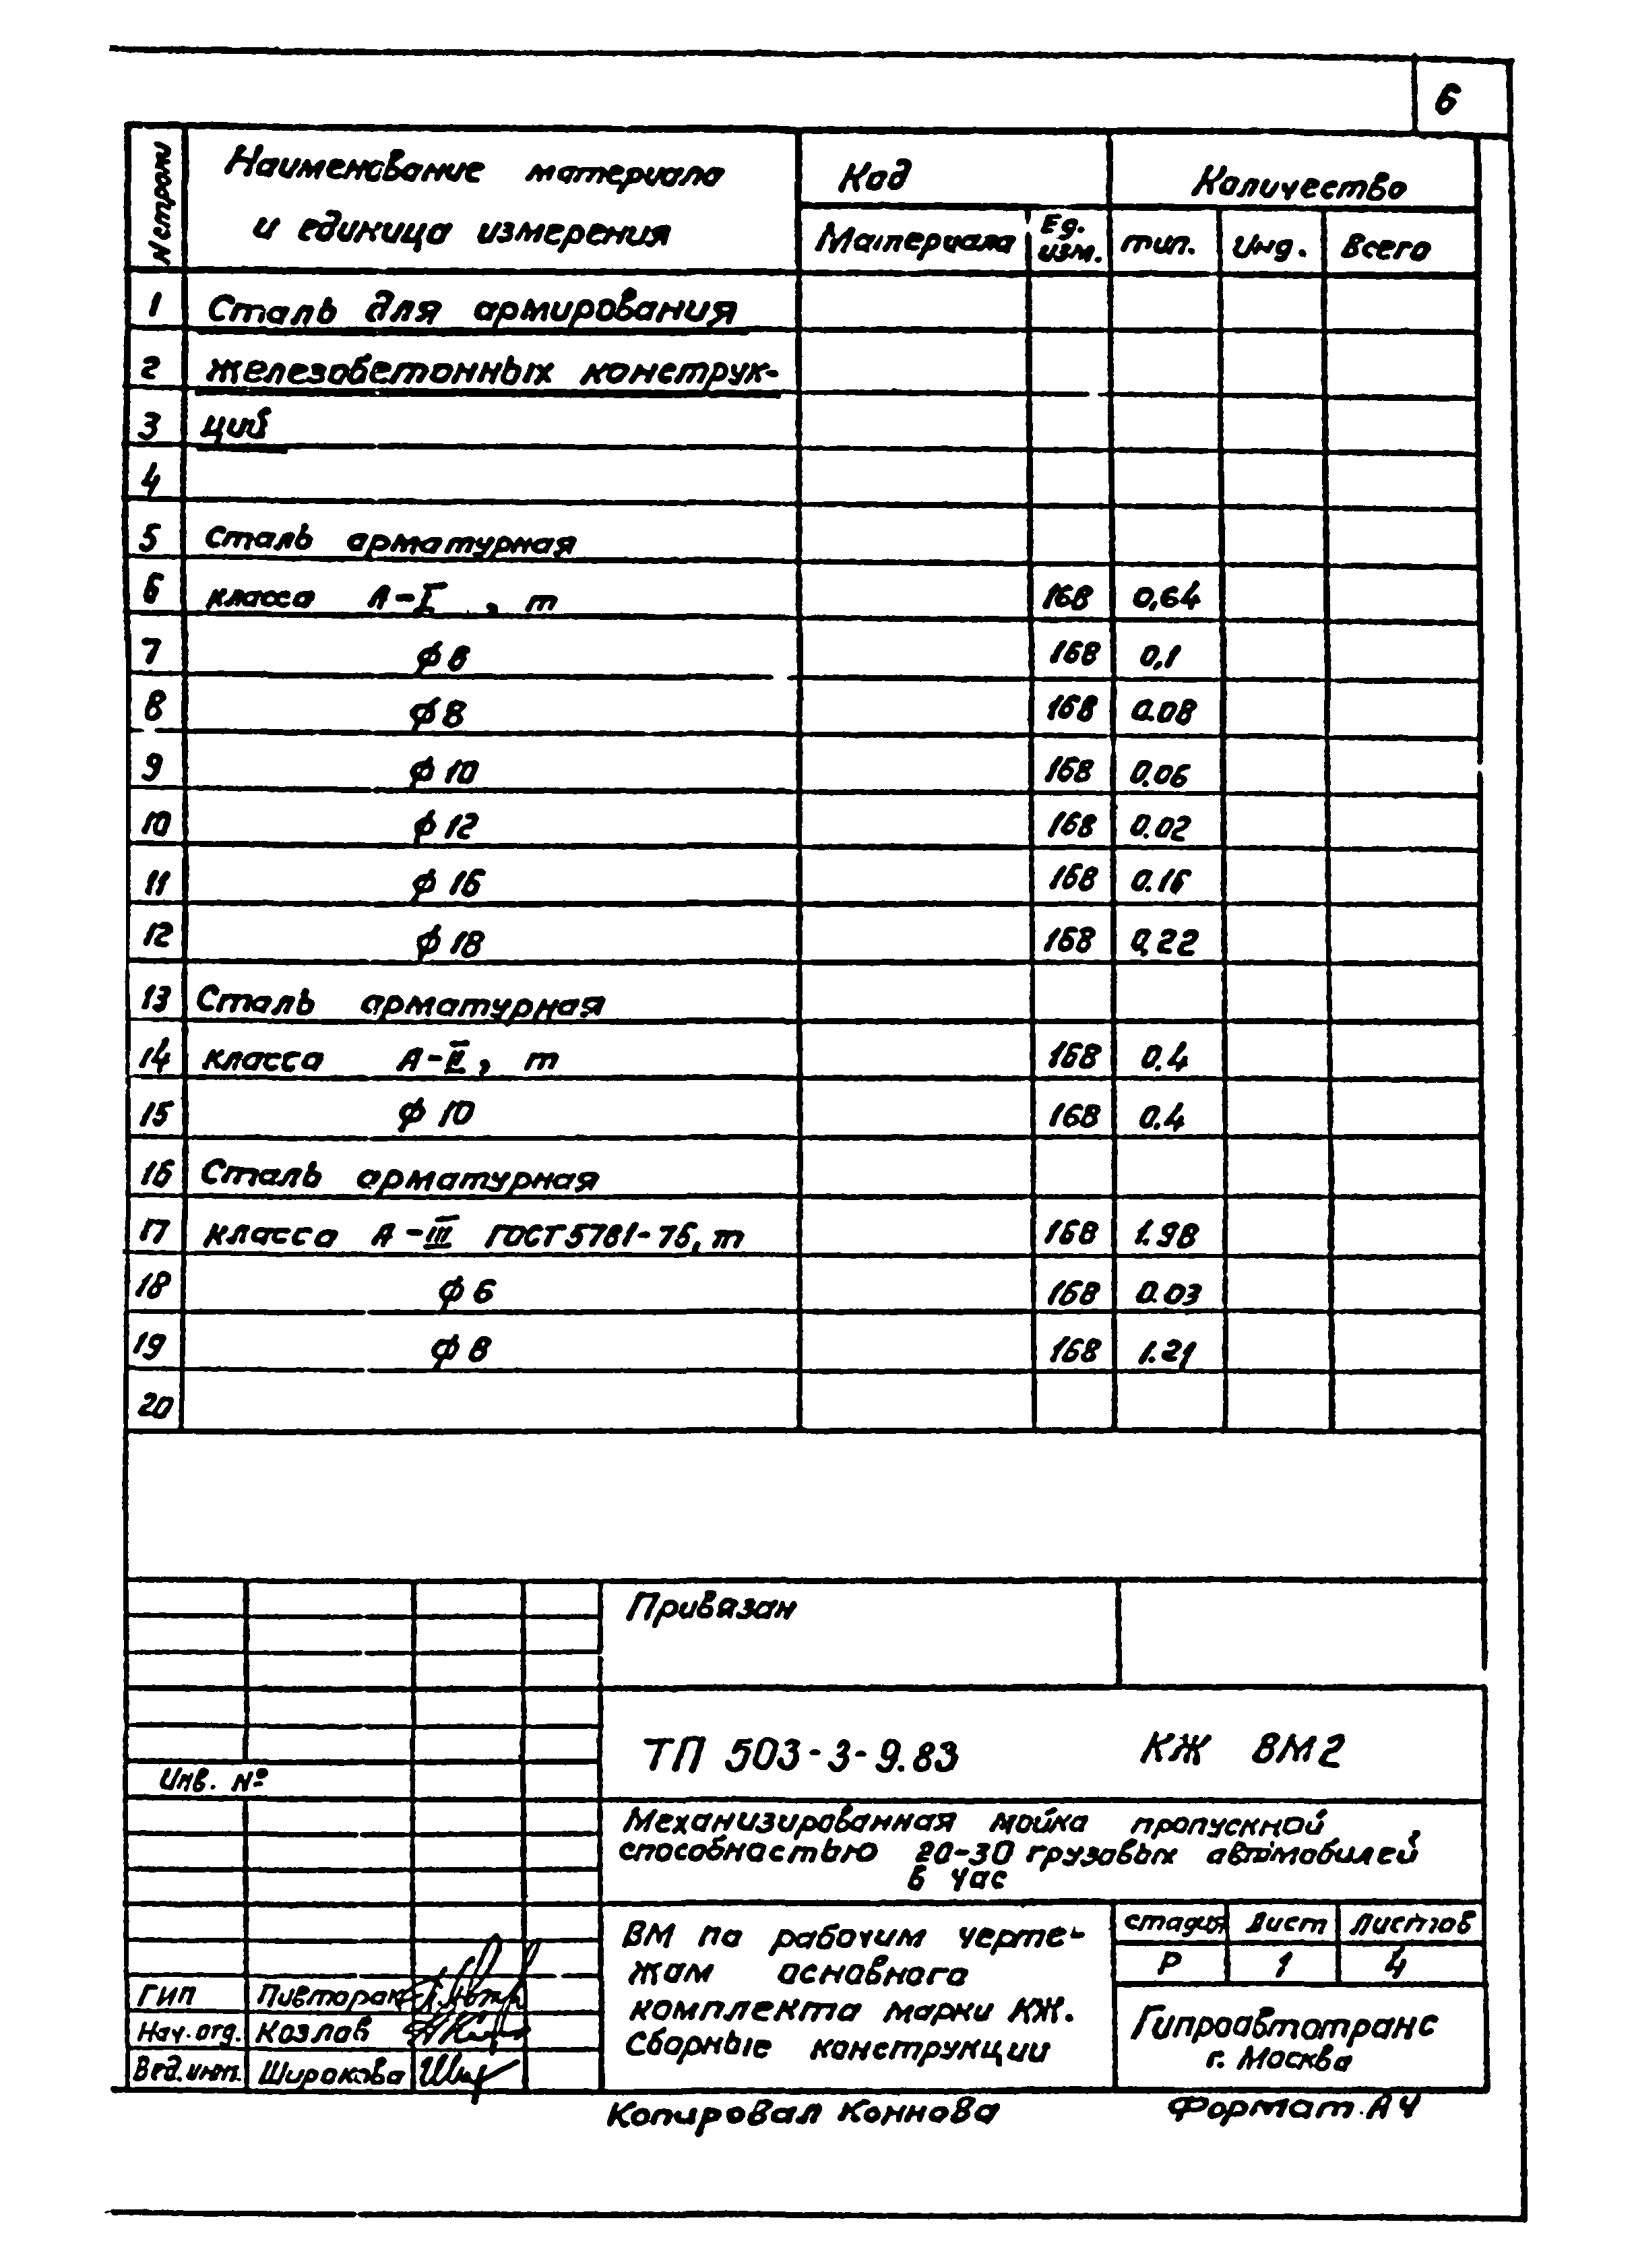 6
N строки Наименование материала Код Количество
и единица измерения Материала Ед. изм. тип. Инд. Всего
1 Сталь для армирования
2 железобетонных конструк-
3 ций
4
5 Сталь арматурная
6 класса А-I , т 168 0,64
7 ϕ 6 168 0,1
8 ϕ 8 168 0.08
9 ϕ 10 168 0.06
10 ϕ 12 168 0.02
11 ϕ 16 168 0.16
12 ϕ 18 168 0,22
13 Сталь арматурная
14 класса А-II, т 168 0.4
15 ϕ 10 168 0.4
16 Сталь арматурная
17 класса А-III ГОСТ 5781-75, т 168 1.98
18 ϕ 6 168 0.03
19 ϕ 8 168 1.21
20
Привязан
ТП 503-3-9.83 КЖ ВМ2
Инв. №
Механизированная мойка пропускной
способностью 20-30 грузовых автомобилей
в час
ВМ по рабочим черте-
жам основного
комплекта марки КЖ.
Сборные конструкции
стадия Лист Листов
Р 1 4
Гипроавтотранс
г. Москва
ГИП Пивторак
Нач. отд. Козлов
Вед. инж. Широкова
Копировал Коннова Формат А4